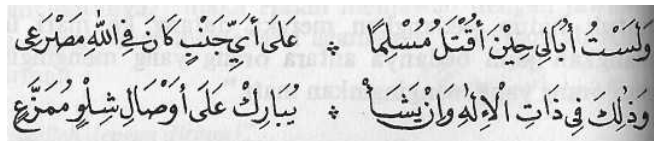 وَلَسْتُ أُبَالِى حِيْنَ أُقْتَلُ مُسْلِمًا ۞ عَلَى أَيِّ جَنْبٍ كَانَ فِى اللهِ مَصْرَعِى
وَذٰلِكَ فِى ذَاتِ الْاِلٰهِ وَاِنْ يَشَأْ ۞ يُبَارِكْ عَلَى أَوْصَالِ شِلْوٍ مُمَزَّعٍ